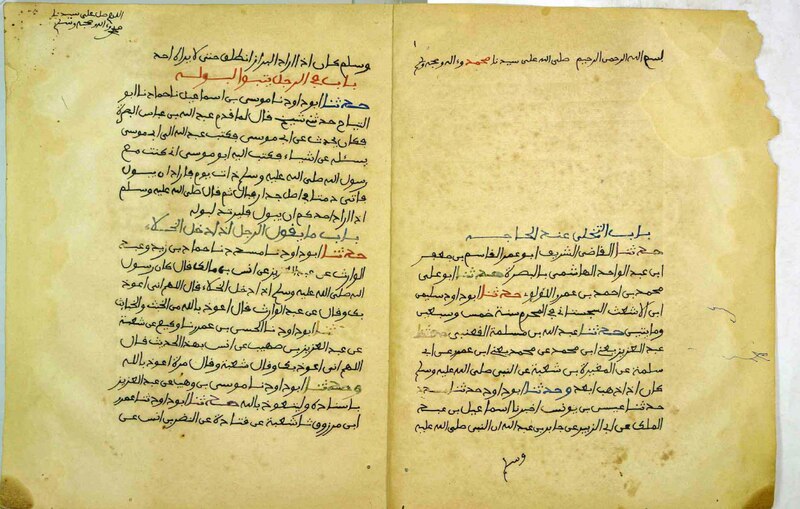 بسم الله الرحمن الرحيم صلى الله على سيدنا محمد وءاله وصحبه
باب التخلى عند الحاجة
حدثنا القاضى الشريف ابو عمر القاسم بن جعفر
ابن عبد الواحد الهاشمى بالبصرة حدثنا ابو على
محمد بن احمد بن عمر اللؤلؤى حدثنا ابو داود سليمن
ابن الاشعث السجستانى فى المحرم سنة خمس وسبعين
ومايتين حدثنا عبد الله بن مسلمة القعنبى حدثنا
عبد العزيز يعنى ابن محمد عن محمد يعنى ابن عمر عن ابى
سلمة عن المغيرة بن شعبة عن النبى صلى الله عليه وسلم
كان اذا ذهب ابعد وحدثنا ابو داود حدثنا
حدثنا عيسى بن يونس اخبرنا اسماعيل بن عبد
الملك عن ابى الزبير عن جابر بن عبد الله ان النبى صلى الله عليه
وسلم
اللهم صل على سيدنا
محمد وءاله وصحبه وسلم
وسلم كان اذا اراد البراز انطلق حتى لا يراه احد
باب فى الرجل تبوا لبوله
حدثنا ابو داود نا موسى بن اسماعيل نا حماد نا ابو
التياح حدثنى شيخ قال لما قدم عبد الله بن عباس البصرة
فكان يحدث عن ابى موسى فكتب عبد الله الى ابى موسى
يسئله عن اشياء فكتب اليه ابو موسى انى كنت مع
رسول الله صلى الله عليه وسلم ذات يوم فاراد ان يبول
فاتى دمثا فى اصل جدار فبال ثم قال صلى الله عليه وسلم
اذا اراد احدكم ان يبول فليرتد لبوله
باب ما يقول الرجل اذا دخل الخلاء
حدثنا ابو داود نا مسدد نا حماد بن زيد وعبد
الوارث عن عبد العزيز عن انس بن مالك قال كان رسول
الله صلى الله عليه وسلم اذا دخل الخلاء قال اللهم انى اعوذ
بك وقال عن عبد الوارث قال اعوذ بالله من الخبث والخبائث
حدثنا ابو داود نا الحسن بن عمر نا وكيع عن شعبة
عن عبد العزيز بن صهيب عن انس بهذا الحديث قال
اللهم انى اعوذ بك وقال شعبة وقال مرة اعوذ بالله
وحدثنا ابو داود نا موسى بن وهيب عن عبد العزيز
باسناده وليتعوذ بالله حدثنا ابو داود نا عمر
ابن مرزوق نا شعبة عن قتادة عن النضر بن انس عن